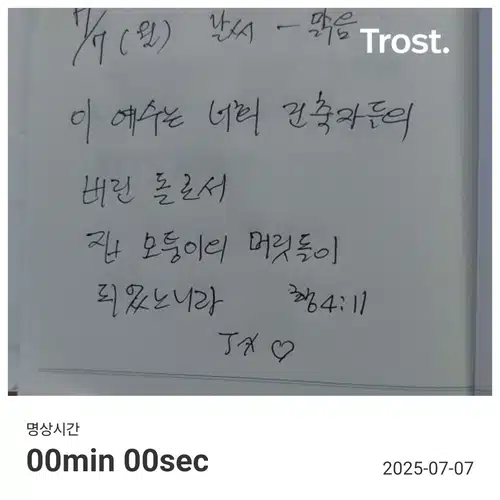 7/7 (월) 날씨 - 맑음
Trost.
이 예수는 너희 건축자들의
버린 돌로서
집 모퉁이의 머릿돌이
되었느니라 행4:11
J
명상시간
00min 00sec
2025-07-07